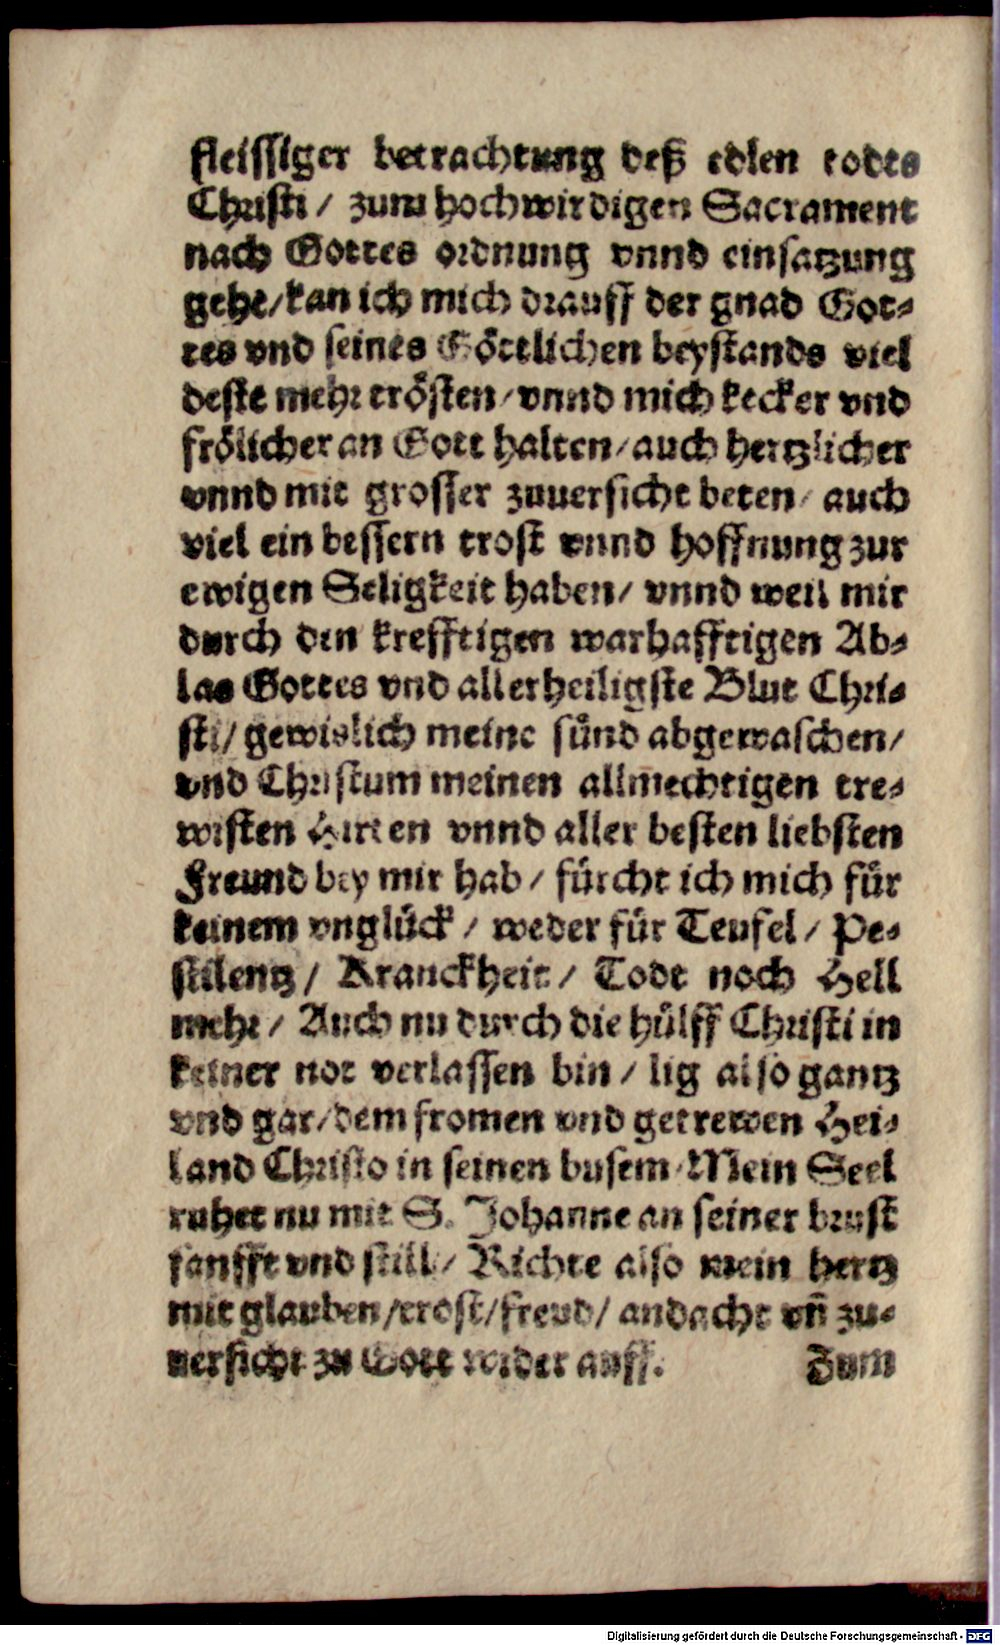 fleissiger betrachtung deß edlen todes
Christi / zum hochwirdigen Sacrament
nach Gottes ordnung vnnd einsatzung
gehe/kan ich mich drauff der gnad Got-
tes vnd seines Göttlichen beystands viel
deste mehr trösten/vnnd mich kecker vnd
frölicher an Gott halten/auch hertzlicher
vnnd mit grosser zuuersicht beten/ auch
viel ein bessern trost vnnd hoffnung zur
ewigen Seligkeit haben/ vnnd weil mir
durch den krefftigen warhafftigen Ab-
las Gottes vnd allerheiligste Blut Chri-
sti/ gewislich meine sünd abgewaschen/
vnd Christum meinen allmechtigen tre-
wisten Hirten vnnd aller besten liebsten
Freund bey mir hab / fürcht ich mich für
keinem vnglück / weder für Teufel / Pe-
stilentz / Kranckheit / Todt noch Hell
mehr / Auch nu durch die hülff Christi in
keiner not verlassen bin / lig also gantz
vnd gar/dem fromen vnd getrewen Hei-
land Christo in seinen busem/Mein Seel
ruhet nu mit S. Johanne an seiner brust
sanfft vnd still/ Richte also mein hertz
mit glauben/trost/freud/ andacht vñ zu-
uersicht zu Gott wider auff. Zum
Digitalisierung gefördert durch die Deutsche Forschungsgemeinschaft - DFG